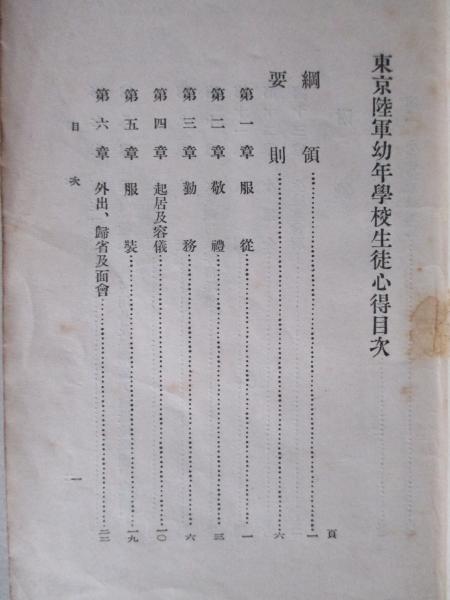 東京陸軍幼年學校生徒心得目次
頁
綱領……一
要則……六
第一章 服從……一
第二章 敬禮……三
第三章 勤務……六
第四章 起居及容儀……一〇
第五章 服裝……一九
第六章 外出、歸省及面會……二二
目次 一